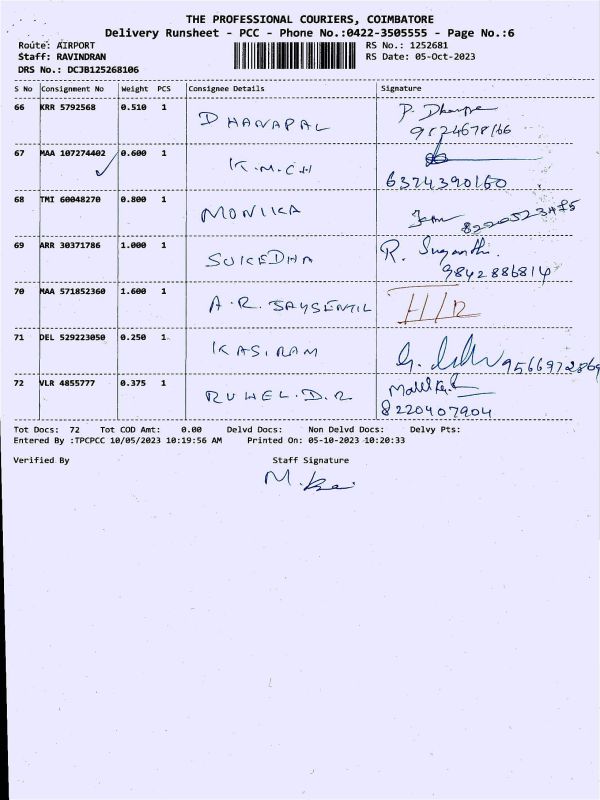 THE PROFESSIONAL COURIERS, COIMBATORE
Delivery Runsheet - PCC - Phone No.:0422-3505555 - Page No.:6
Route: AIRPORT RS No.: 1252681
Staff: RAVINDRAN RS Date: 05-Oct-2023
DRS No.: DCJB125268106
S No Consignment No Weight PCS Consignee Details Signature
66 KRR 5792568 0.510 1 DHANAPAL
67 MAA 107274402 0.600 1 K.M.C.H
6374390160
68 TMI 60048270 0.800 1 MONIIKA
69 ARR 30371786 1.000 1 SUKEDHA R. Sugandhi
9842886814
70 MAA 571852360 1.600 1 A.R. JAYSENTIL H/R
71 DEL 529223050 0.250 1 KASIRAM 9566972869
72 VLR 4855777 0.375 1 RUHEL.D.R
8220407904
Tot Docs: 72 Tot COD Amt: 0.00 Delvd Docs: Non Delvd Docs: Delvy Pts:
Entered By :TPCPCC 10/05/2023 10:19:56 AM Printed On: 05-10-2023 10:20:33
Verified By Staff Signature